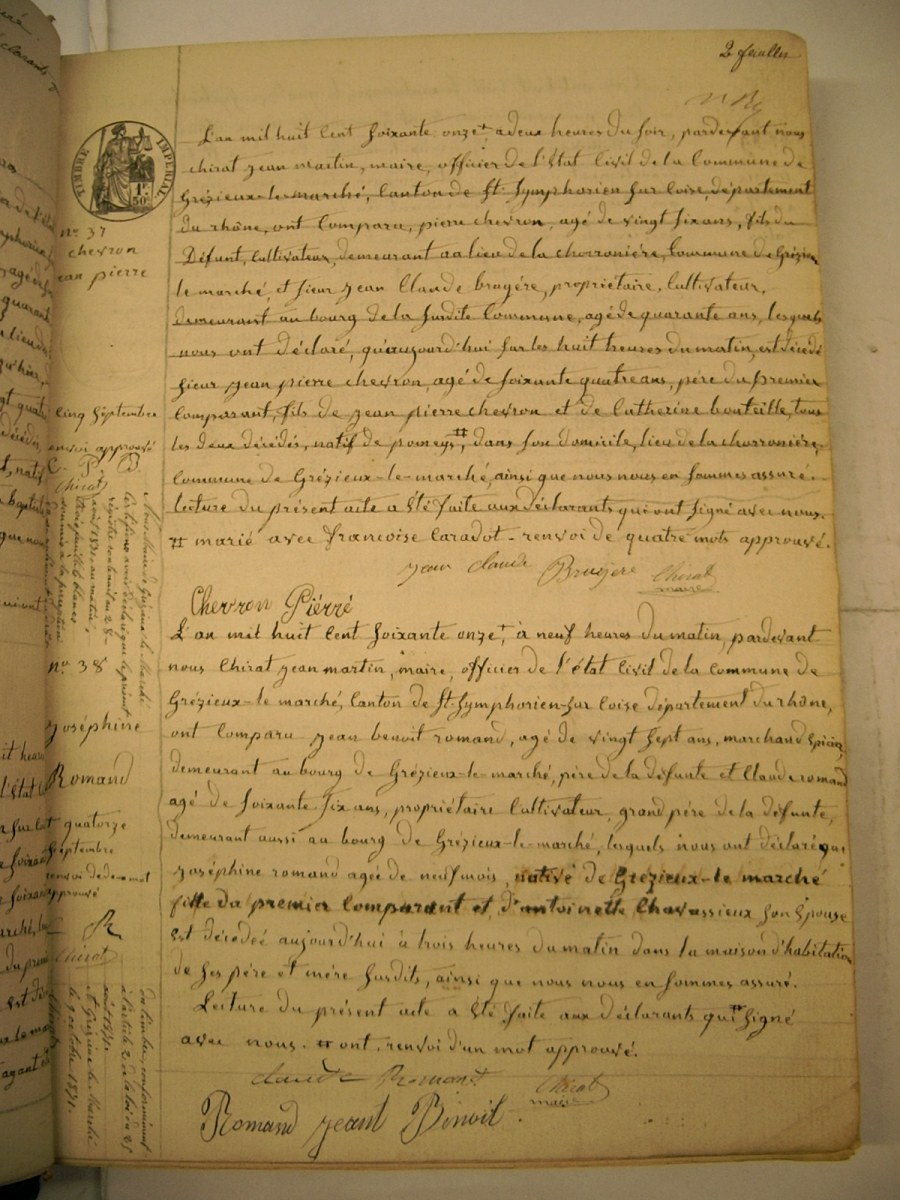 2 feuilles
TIMBRE IMPERIAL
1F
50c
nº 37
chevron
jean pierre
cinq Septembre
renvoi approuvé
C. P.
Chirat
L'an mil huit cent soixante onze ‡ a deux heures du soir, pardevant nous
chirat jean martin, maire, officier de l'état civil de la commune de
Grézieux-le-marché, canton de St Symphorien sur coise, département
du rhône, ont comparu, pierre chevron, agé de vingt six ans, fils du
Défunt, cultivateur, demeurant au lieu de la chorronière, commune de Grézieux
le marché, et sieur jean Claude bruyére, propriétaire, cultivateur,
demeurant au bourg de la susdite commune, agé de quarante ans, lesquels
nous ont déclaré, qu'aujourd'hui sur les huit heures du matin, est décédé
sieur jean pierre chevron, agé de soixante quatre ans, père du premier
comparant, fils de jean pierre chevron et de Catherine bouteille, tous
les deux décédés, natif de pomeys ‡‡, dans son domicile, lieu de la chorronière,
commune de Grézieux-le-marché, ainsi que nous nous en sommes assuré.
Lecture du présent acte a été faite aux déclarants qui ont signé avec nous.
‡‡ marié avec francoise Caradot - renvoi de quatre mots approuvé.
jean claude Bruyere Chirat
maire
Chevron Piérré
nº 38
Joséphine
Romand
quatorze
Septembre
renvoi de deux mot
approuvé
Chirat
L'an mil huit cent soixante onze ‡, à neuf heures du matin, pardevant
nous Chirat jean martin, maire, officier de l'état civil de la commune de
Grézieux-le marché, canton de St-Symphorien-sur coise département du rhône,
ont comparu jean benoit romand, agé de vingt sept ans, marchand épicier,
demeurant au bourg de Grézieux-le-marché, père de la défunte et Claude romand
agé de soixante six ans, propriétaire cultivateur, grand père de la défunte,
demeurant aussi au bourg de Grézieux-le-marché, lesquels nous ont déclaré que
joséphine romand agée de neuf mois, native de Grézieux-le marché
fille du premier comparant et d'antoinette Chavassieux son épouse
est décédeé aujourd'hui à trois heures du matin dans la maison d'habitation
de ses père et mère susdits, ainsi que nous nous en sommes assuré.
Lecture du présent acte a été faite aux déclarants qui ‡‡ signé
avec nous. ‡‡ ont. renvoi d'un mot approuvé.
claude Romant Chirat
maire
Romand jeant Binoit